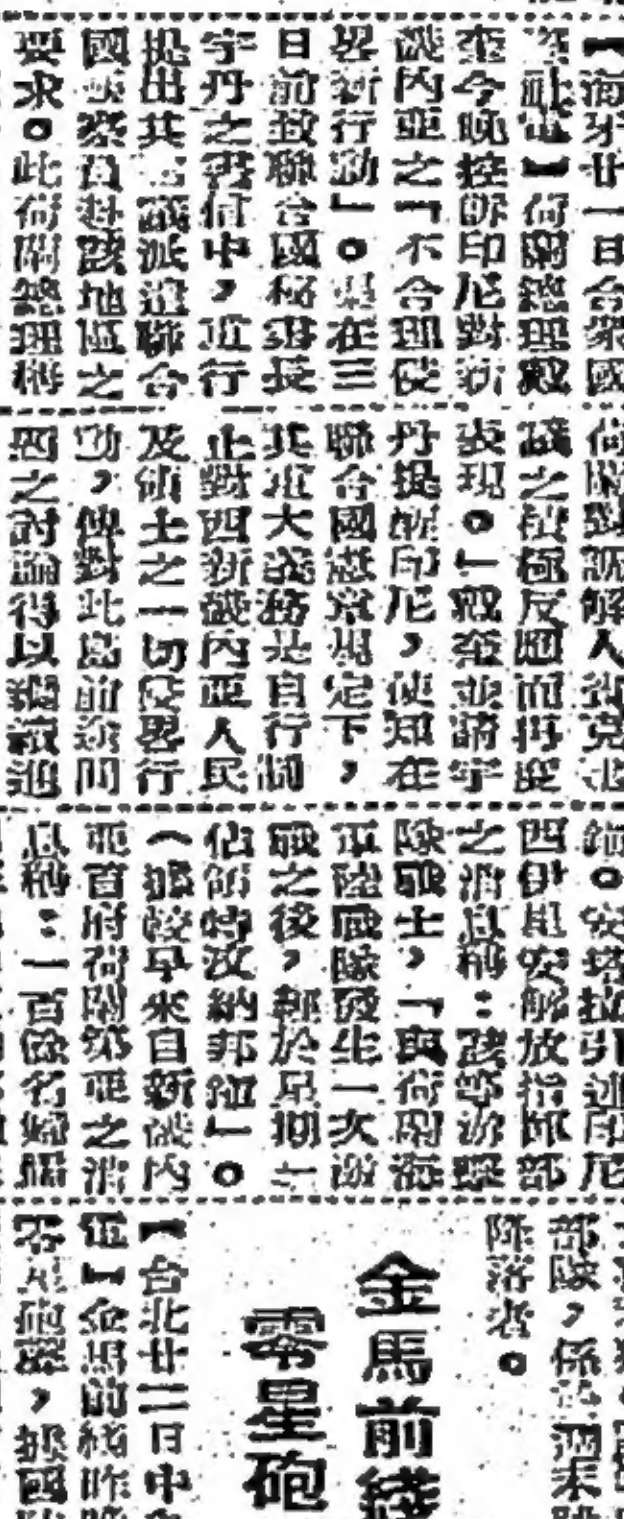 【海牙廿一日合眾國
際社電】荷蘭總理戴
奎今晚控訴印尼對新
畿內亞之「不合理侵
畧新行動」。他在三
日前致聯合國秘書長
宇丹之書信中，重行
提出其建議派遣聯合
國視察員赴該地區之
要求。此荷蘭總理稱
荷蘭對調解人
議之積極反應而再度
表現。」戴奎並請宇
丹提醒印尼，使知在
聯合國憲章規定下，
其重大義務是自行制
止對西新畿內亞人民
及領土之一切侵畧行
動，俾對此島前途問
題之討論得以繼續進
鎮。安塔拉引述印尼
西伊里安解放指揮部
之消息稱：該等游擊
隊戰士，「與荷蘭海
軍陸戰隊發生一次激
戰之後，都於星期一
佔領特汶納邦鎮」。
（據較早來自新畿內
亞首府荷蘭第亞之消
息稱：一百餘名
部隊，係在週末
降落者。
金馬前綫
零星砲
【台北廿二日中
電】金馬前綫昨
零星砲擊，據國